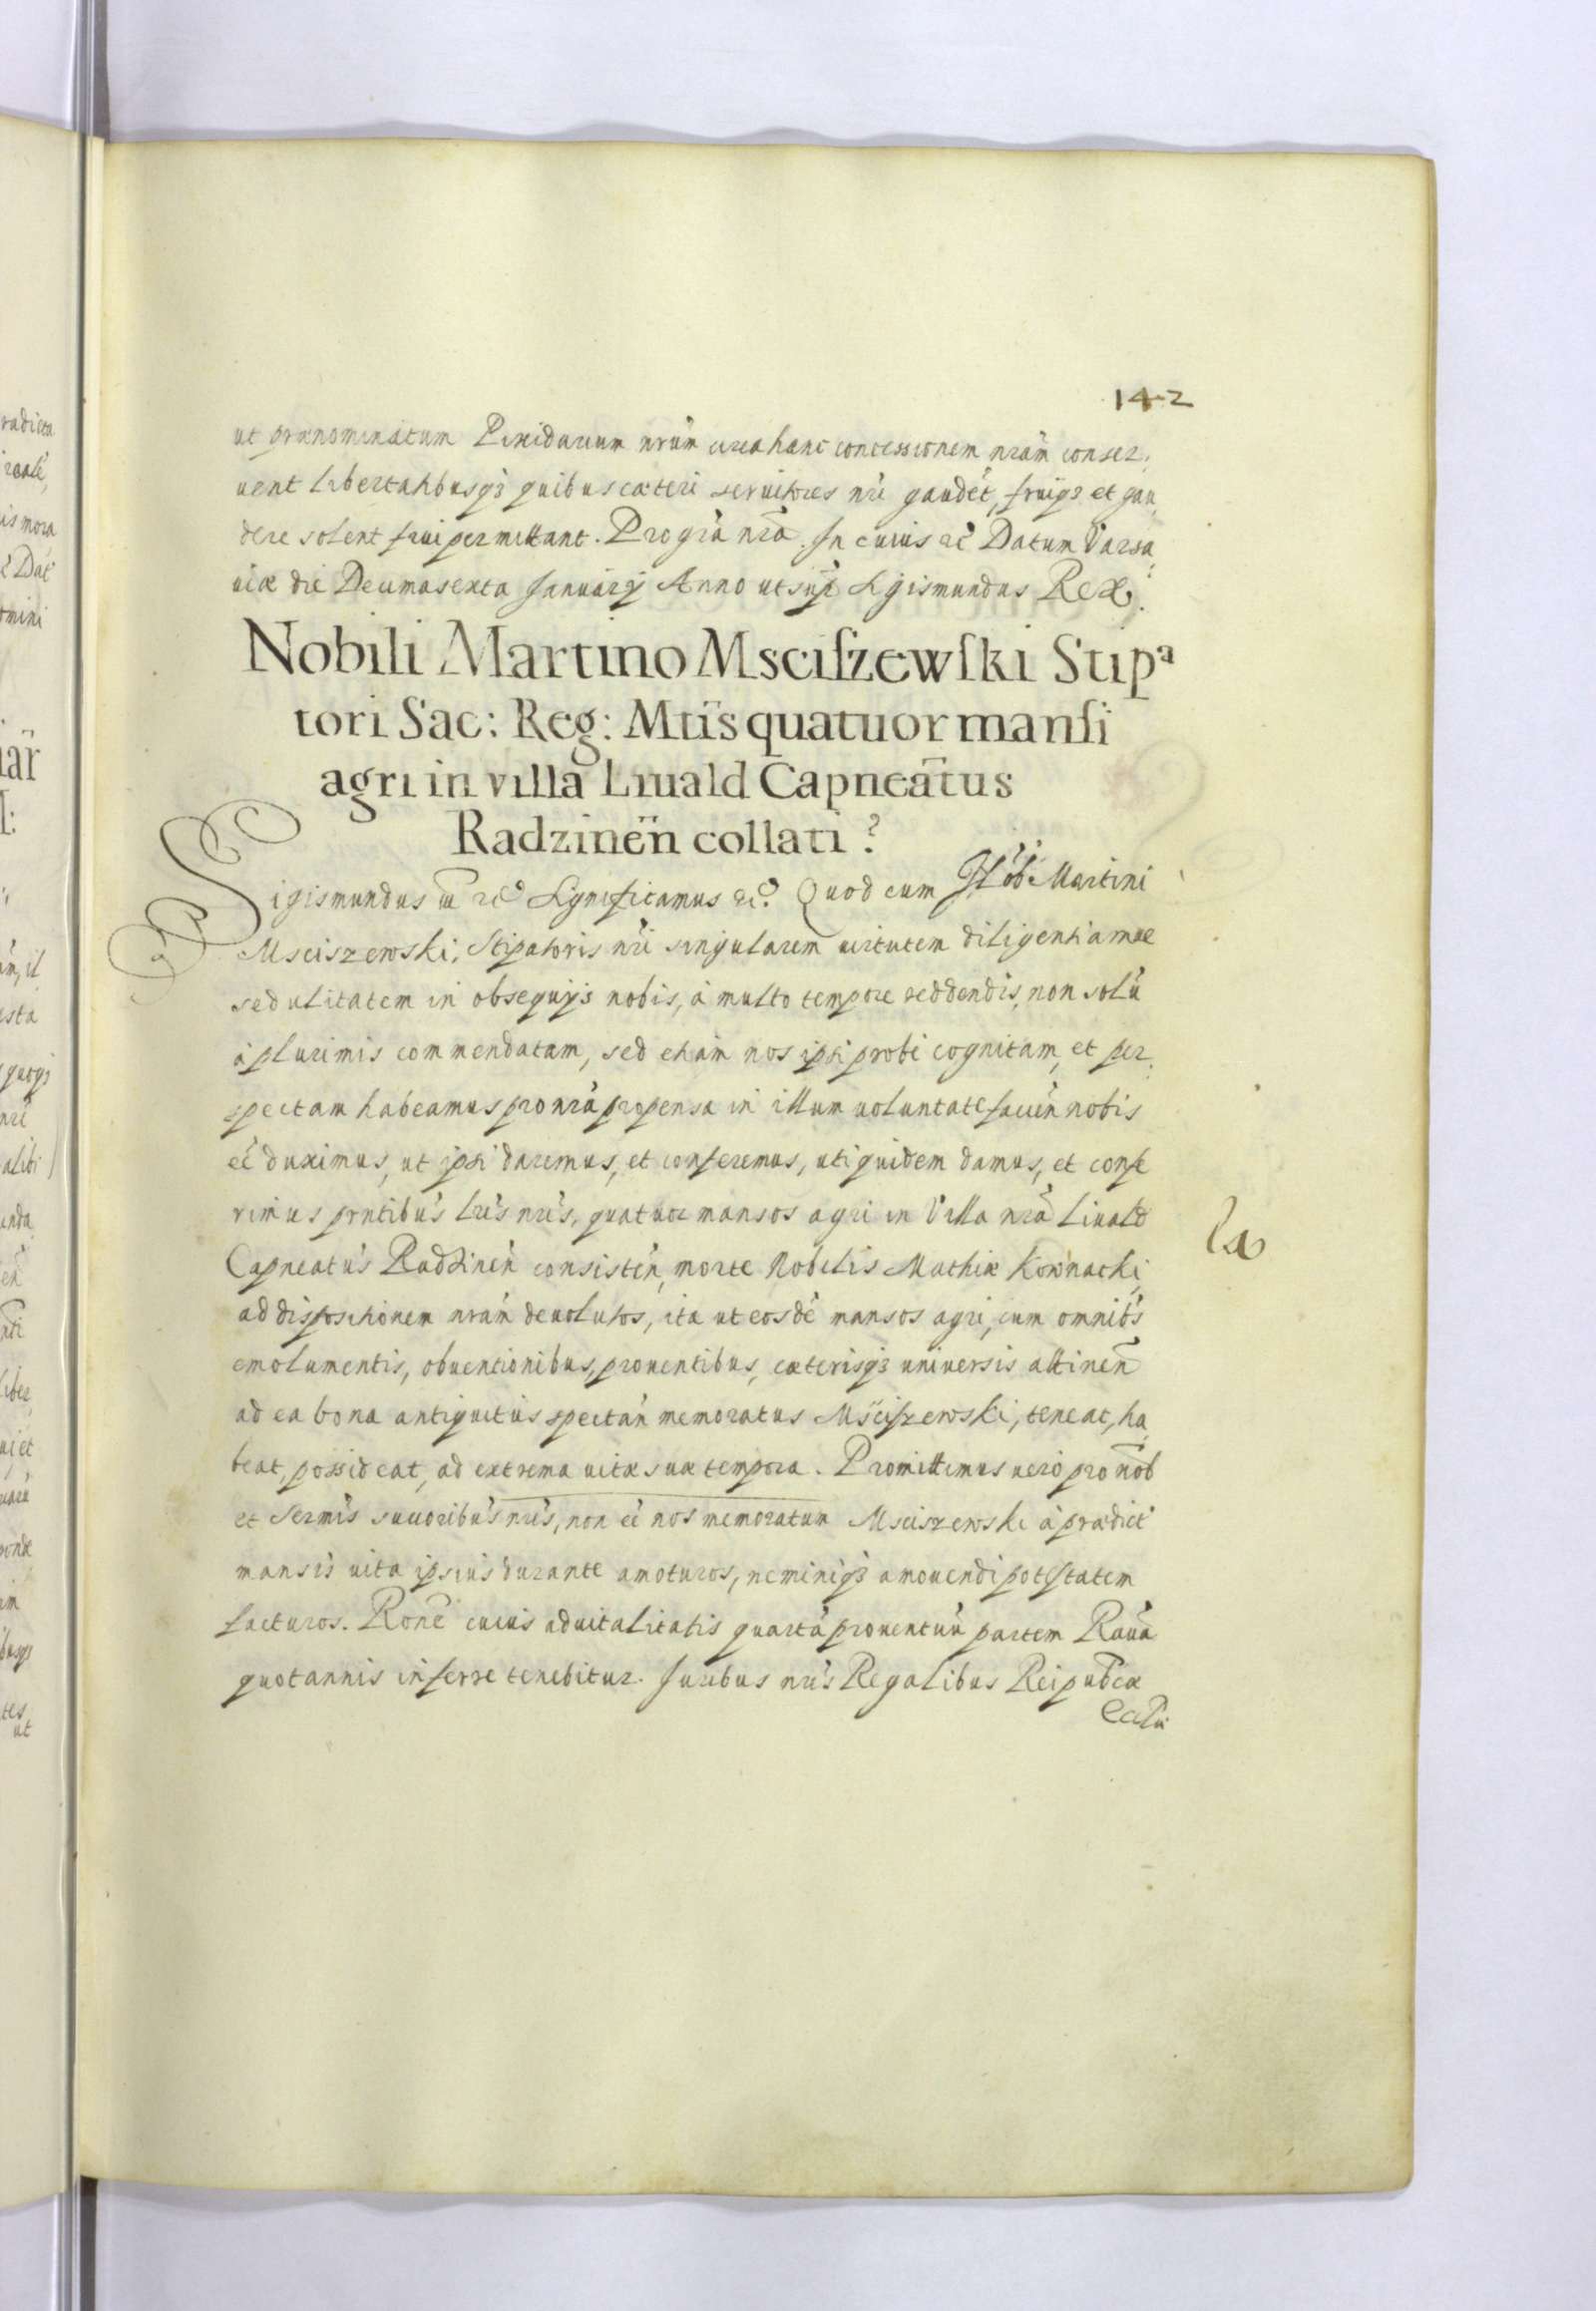 142
ut prænominatum Pixidarium nrum circa hanc concessionem nram conser,
uent libertatibusq3 quibus cæteri seruitores nri gaudet, fruiq3 et gau,
dere solent frui permittant. Pro gra nra. In cuius rc Datum Varsa,
uiæ die Decimasexta Januarij Anno ut sup Sigismundus Rex.
Nobili Martino Msciſzewſki Stipa
tori Sac: Reg: Mtis quatuor manſi
agri in villa Liuald Capneatus
Radzinen collati
Sigismundus iii rc Significamus rc. Quod cum Nob Martini
Msciszewski, Stipatoris nri singularem uirtutem diligentiamue
sedulitatem in obsequijs nobis, à multo tempore reddendis, non solu
à plurimis commendatam, sed etiam nos ipsi probe cognitam, et per,
spectam habeamus pro nra propensa in illum uoluntate facien nobis
ee duximus, ut ipsi daremus, et conferemus, uti quidem damus, et confe
rimus prntibus lris nris, quatuor mansos agri in Villa nra Liuald
Capneatus Radzinen consisten, morte Nobilis Mathiæ Kownacki,
ad dispositionem nram deuolutos, ita ut eosde mansos agri, cum omnibs
emolumentis, obuentionibus, prouentibus, cæterisq3 uniuersis attinen
ad ea bona antiquitus spectan memoratus Msciſzewski, teneat, ha,
beat, possideat, ad extrema uitæ suæ tempora. Promittimus uero pro nob
et Sermis succoribus nris, non ee nos memoratum Msciszewski à prædict
mansis uita ipsius durante amoturos, neminiq3 amouendi potestatem
facturos. Rone cuius aduitalitatis quarta prouentuu partem Raua
quotannis inferre tenebitur. Juribus nris Regalibus Reipublcæ